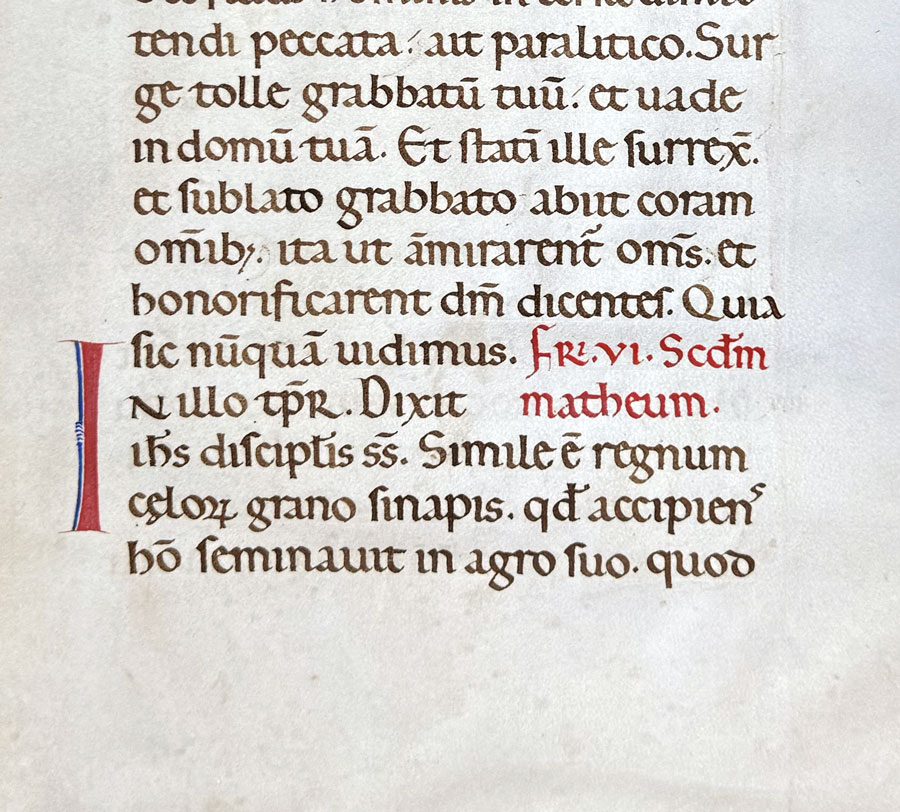 tendi peccata. ait paralitico. Sur
ge tolle grabbatū tuū. et uade
in domū tuā. Et statī ille surrex̄.
et sublato grabbato abiit coram
om̄ibꝫ. ita ut āmirarent᷑ om̄s. et
honorificarent dm̄ dicentes. Quia
sic nūquā uidimus. FR͛. VI. Scd̄m
N illo tp̄R. Dixit matheum.
ih̄s discipl̄is ss̄. Simile ē regnum
cęloꝝ grano sinapis. qd̄ accipiens
hō seminauit in agro suo. quod
I